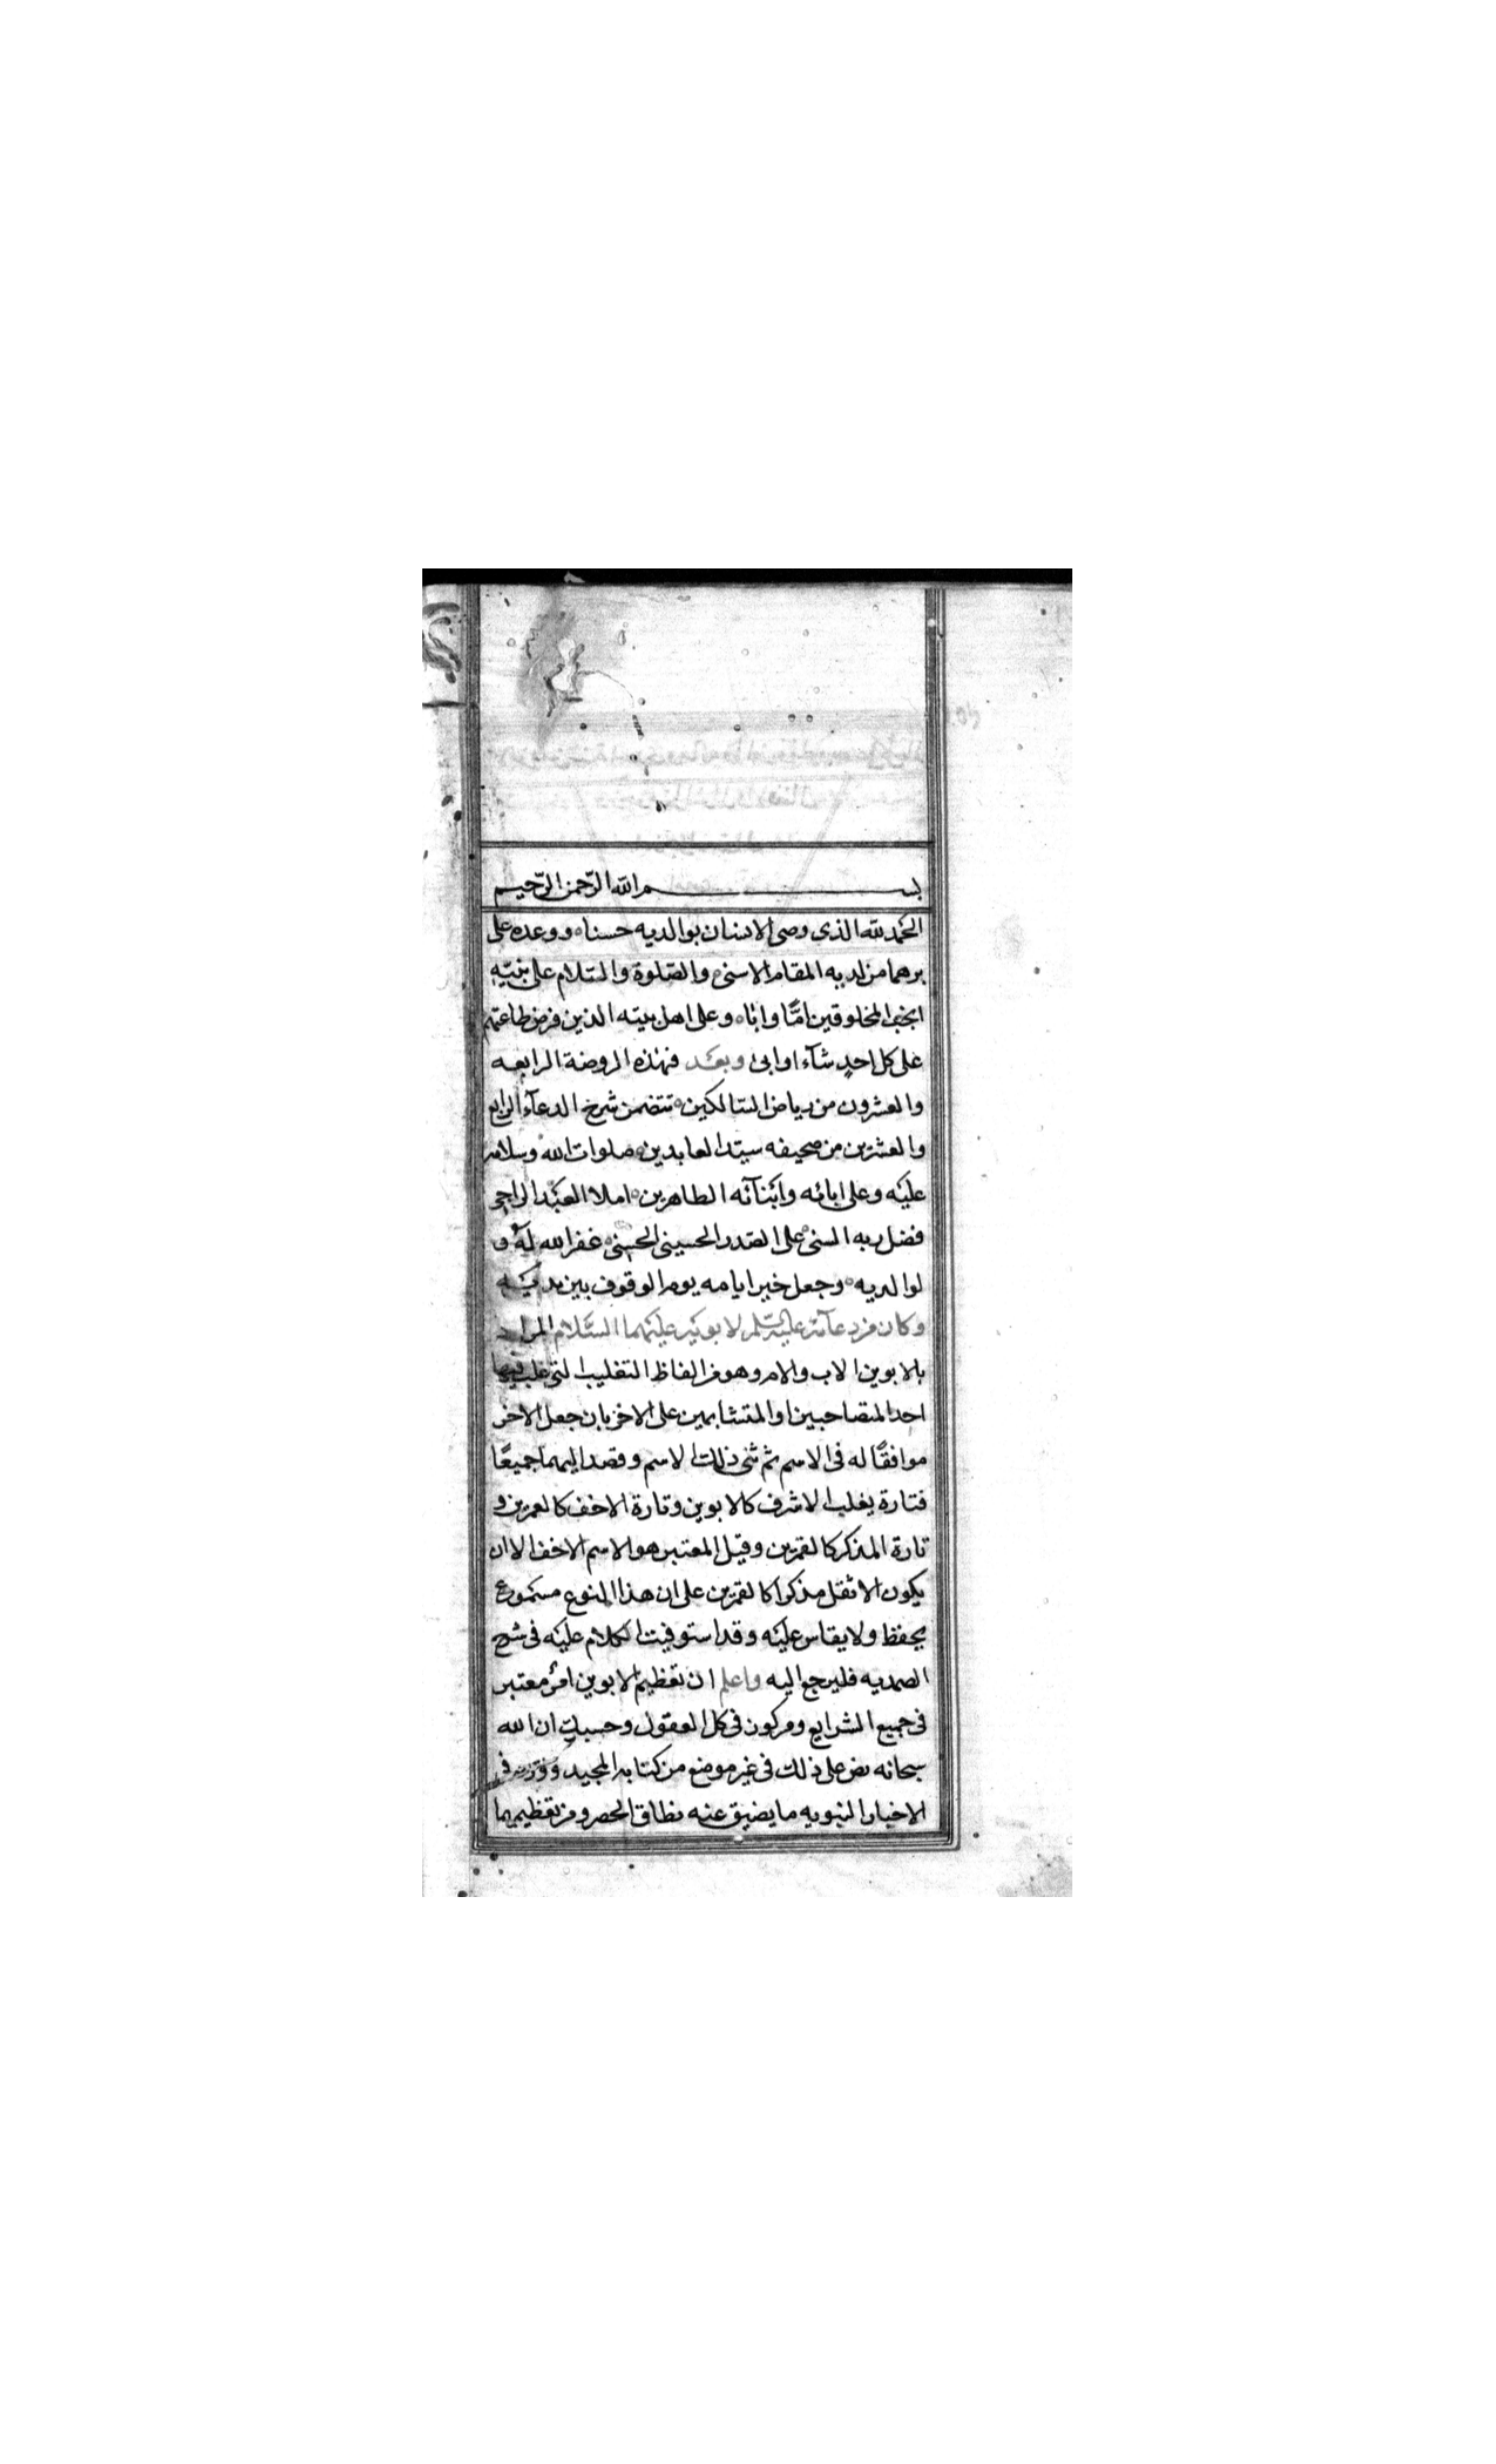 بسم الله الرحمن الرحيم
الحمد لله الذى وصى الانسان بوالديه حسنا ووعده على
برهما من لديه المقام الاسنى والصلوة والسلام على نبيّه
انجب المخلوقين امّا وابا وعلى اهل بيته الذين فرض طاعتهم
على كل احدٍ شآء او ابى وبعد فهذه الروضة الرابعه
والعشرون من رياض السالكين تتضمن شرح الدعآء الرابع
والعشرين من صحيفه سيّد العابدين صلوات الله وسلامه
عليه وعلى ابائه وابنآئه الطاهرين املا العبد الراجى
فضل ربه السنى على الصدر الحسينى الحسنى غفر الله له و
لوالديه وجعل خير ايامه يوم الوقوف بين يديه
وكان من دعآئه عليه السّلم لابويه عليهما السّلام المراد
بالابوين الاب والام وهو من الفاظ التغليب التى غلب فيها
احد المتصاحبين او المتشابهين على الاخر بان جعل الاخر
موافقًا له فى الاسم ثم ثنى ذلك الاسم وقصد اليهما جميعًا
فتارة يغلب الاشرف كالابوين وتارة الاخف كالعمرين و
تارة المذكر كالقمرين وقيل المعتبر هو الاسم الاخف الا ان
يكون الاثقل مذكرا كالقمرين على ان هذا النوع مسموع
يحفظ ولا يقاس عليه وقد استوفيت الكلام عليه فى شرح
الصمديه فليرجع اليه واعلم ان تعظيم الابوين امرٌ معتبر
فى جميع الشرايع ومركون فى كل العقول وحسبك ان الله
سبحانه نص على ذلك فى غير موضع من كتابه المجيد وورد فى
الاخبار النبويه ما يضيق عنه نطاق الحصر ومن تعظيمهما